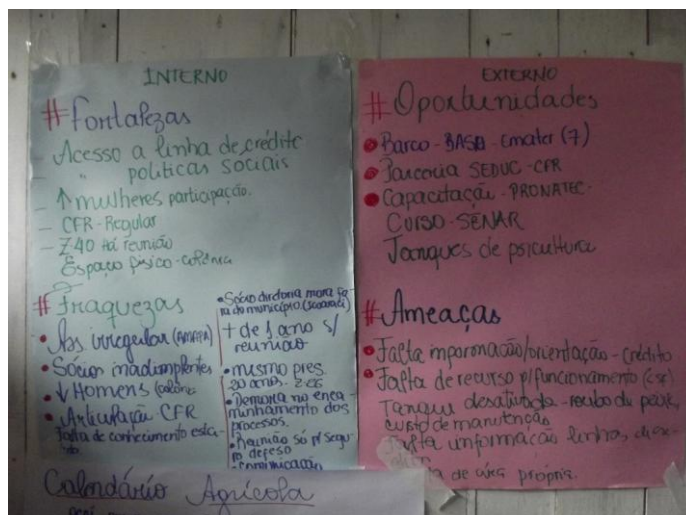 INTERNO
#Fortalezas
- Acesso a linha de crédito
- " políticas sociais
- ↑ mulheres participação.
- CFR - Regular
- Z40 há reunião
Espaço físico - colônia
# Fraquezas
• Ass irregular (AMAPA)
• Sócios inadimplentes
• ↓ Homens (colônia
• Articulação CFR
Falta de conhecimento esta-
• Sócio diretoria mora fo-
ra do município.
+ de 1 ano s/
reunião
• mesmo pres.
20 anos.
• Demora no enca-
minhamento dos
processos.
• Reunião só p/ segu-
ro defeso
• comunicação
EXTERNO
#Oportunidades
• Barco - BASA - Emater (7)
• Parceria SEDUC - CFR
• Capacitação - PRONATEC -
CURSO - SENAR
Tanques de psicultura
#Ameaças
• Falta informação/orientação - crédito
• Falta de recurso p/ funcionamento (CFR)
Tanque desativado - roubo de peixe,
custo de manutenção
Falta informação linhas de
de área própria.
Calendário Agrícola